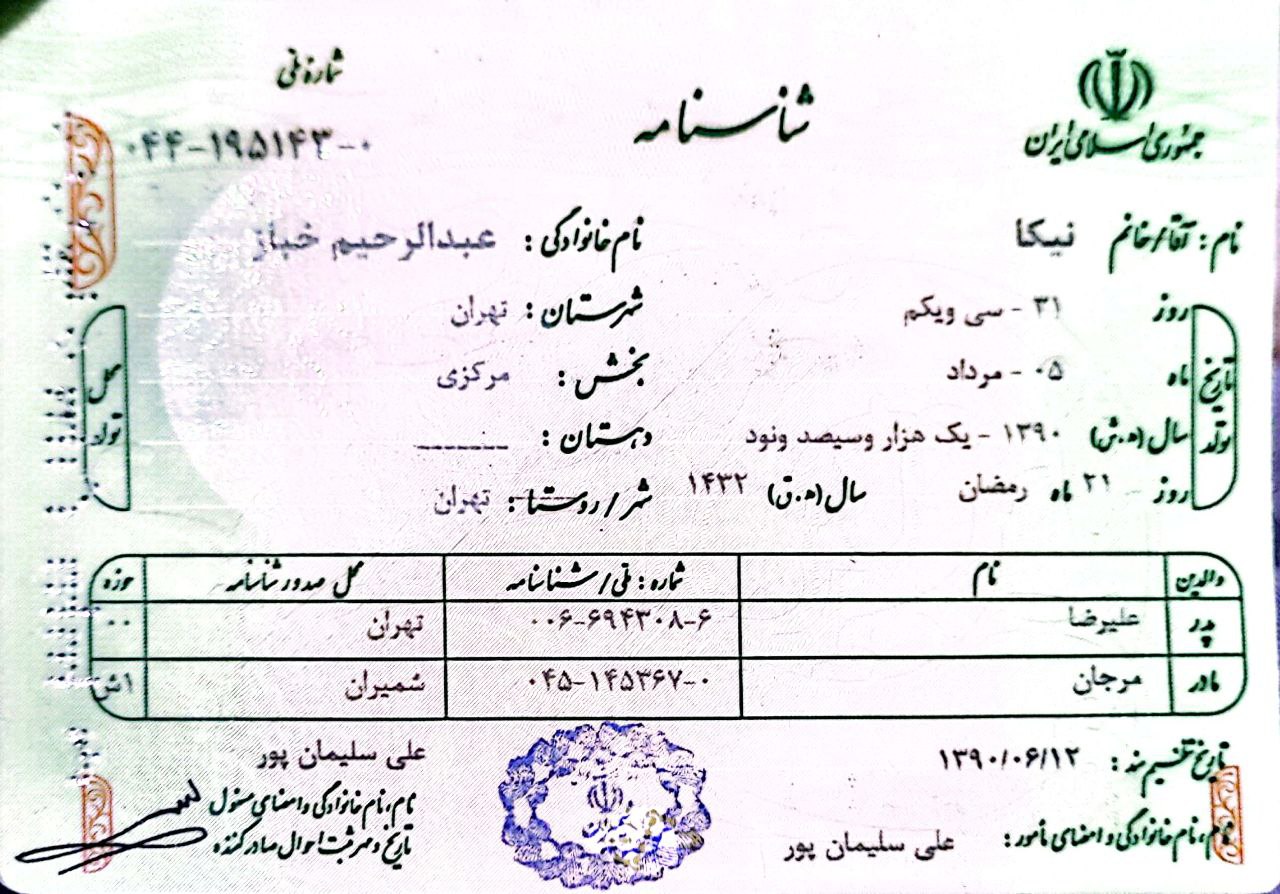 جمهوری اسلامی ایران
شناسنامه
شماره ملی
۰۴۴-۱۹۵۱۴۳-۰
نام : آقا/خانم نیکا نام خانوادگی : عبدالرحیم خباز
تاریخ تولد
روز ۳۱ - سی ویکم شهرستان : تهران
ماه ۰۵ - مرداد بخش : مرکزی
سال (ه.ش) ۱۳۹۰ - یک هزار وسیصد ونود دهستان : -------
روز ۲۱ ماه رمضان سال (ه.ق) ۱۴۳۲ شهر/روستا : تهران
محل تولد
والدین نام شماره : ملی/شناسنامه محل صدور شناسنامه حوزه
پدر علیرضا ۰۰۶-۶۹۴۳۰۸-۶ تهران ۰۰
مادر مرجان ۰۴۵-۱۴۵۳۶۷-۰ شمیران اش
تاریخ تنظیم سند : ۱۳۹۰/۰۶/۱۲ علی سلیمان پور
نام، نام خانوادگی و امضای مسئول
نام، نام خانوادگی و امضای مأمور : علی سلیمان پور
تاریخ و مهر ثبت احوال صادر کننده